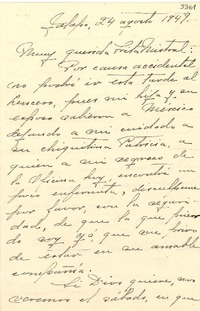 3361
Jalapa, 24 agosto 1949.
Muy querida Srita Mistral:
Por causa accidental
no podré ir esta tarde al
pues mi hija y su
esposo salieron a México
dejando a mi cuidado a
su chiquitina Patricia, a
quien a mi regreso de
la Oficina hoy, encontré un
poco enfermita; discúlpeme
por favor, con la seguri-
dad, de que la que pierde
soy yo, que me privo
de estar en su amable
compañía.
Si Dios quiere, nos
veremos el sábado, en que